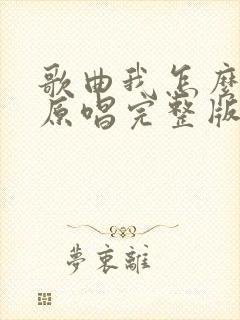 歌曲我怎麼
原唱完整版
夢衷離